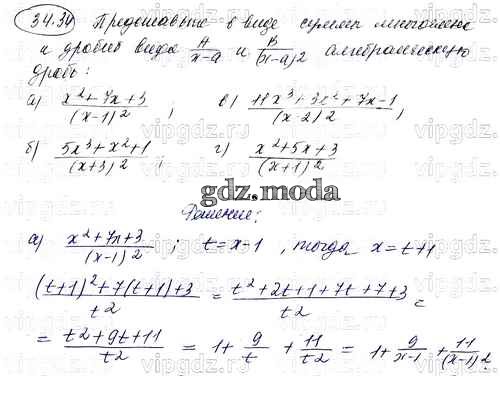 34.34 Представьте в виде суммы многочлена
и дробей вида A/(x-a) и B/(x-a)2 алгебраическую
дробь:
а) (x²+7x+3)/(x-1)² ; в) (11x³+3x²+7x-1)/(x-2)² ,
б) (5x³+x²+1)/(x+3)² ; г) (x²+5x+3)/(x+1)²
gdz.moda
Решение:
а) (x²+7x+3)/(x-1)² ; t=x-1 , тогда x=t+1
((t+1)²+7(t+1)+3)/t2 = (t²+2t+1+7t+7+3)/t2 =
= (t2+9t+11)/t2 = 1+ 9/t + 11/t2 = 1+ 9/(x-1) + 11/(x-1)2